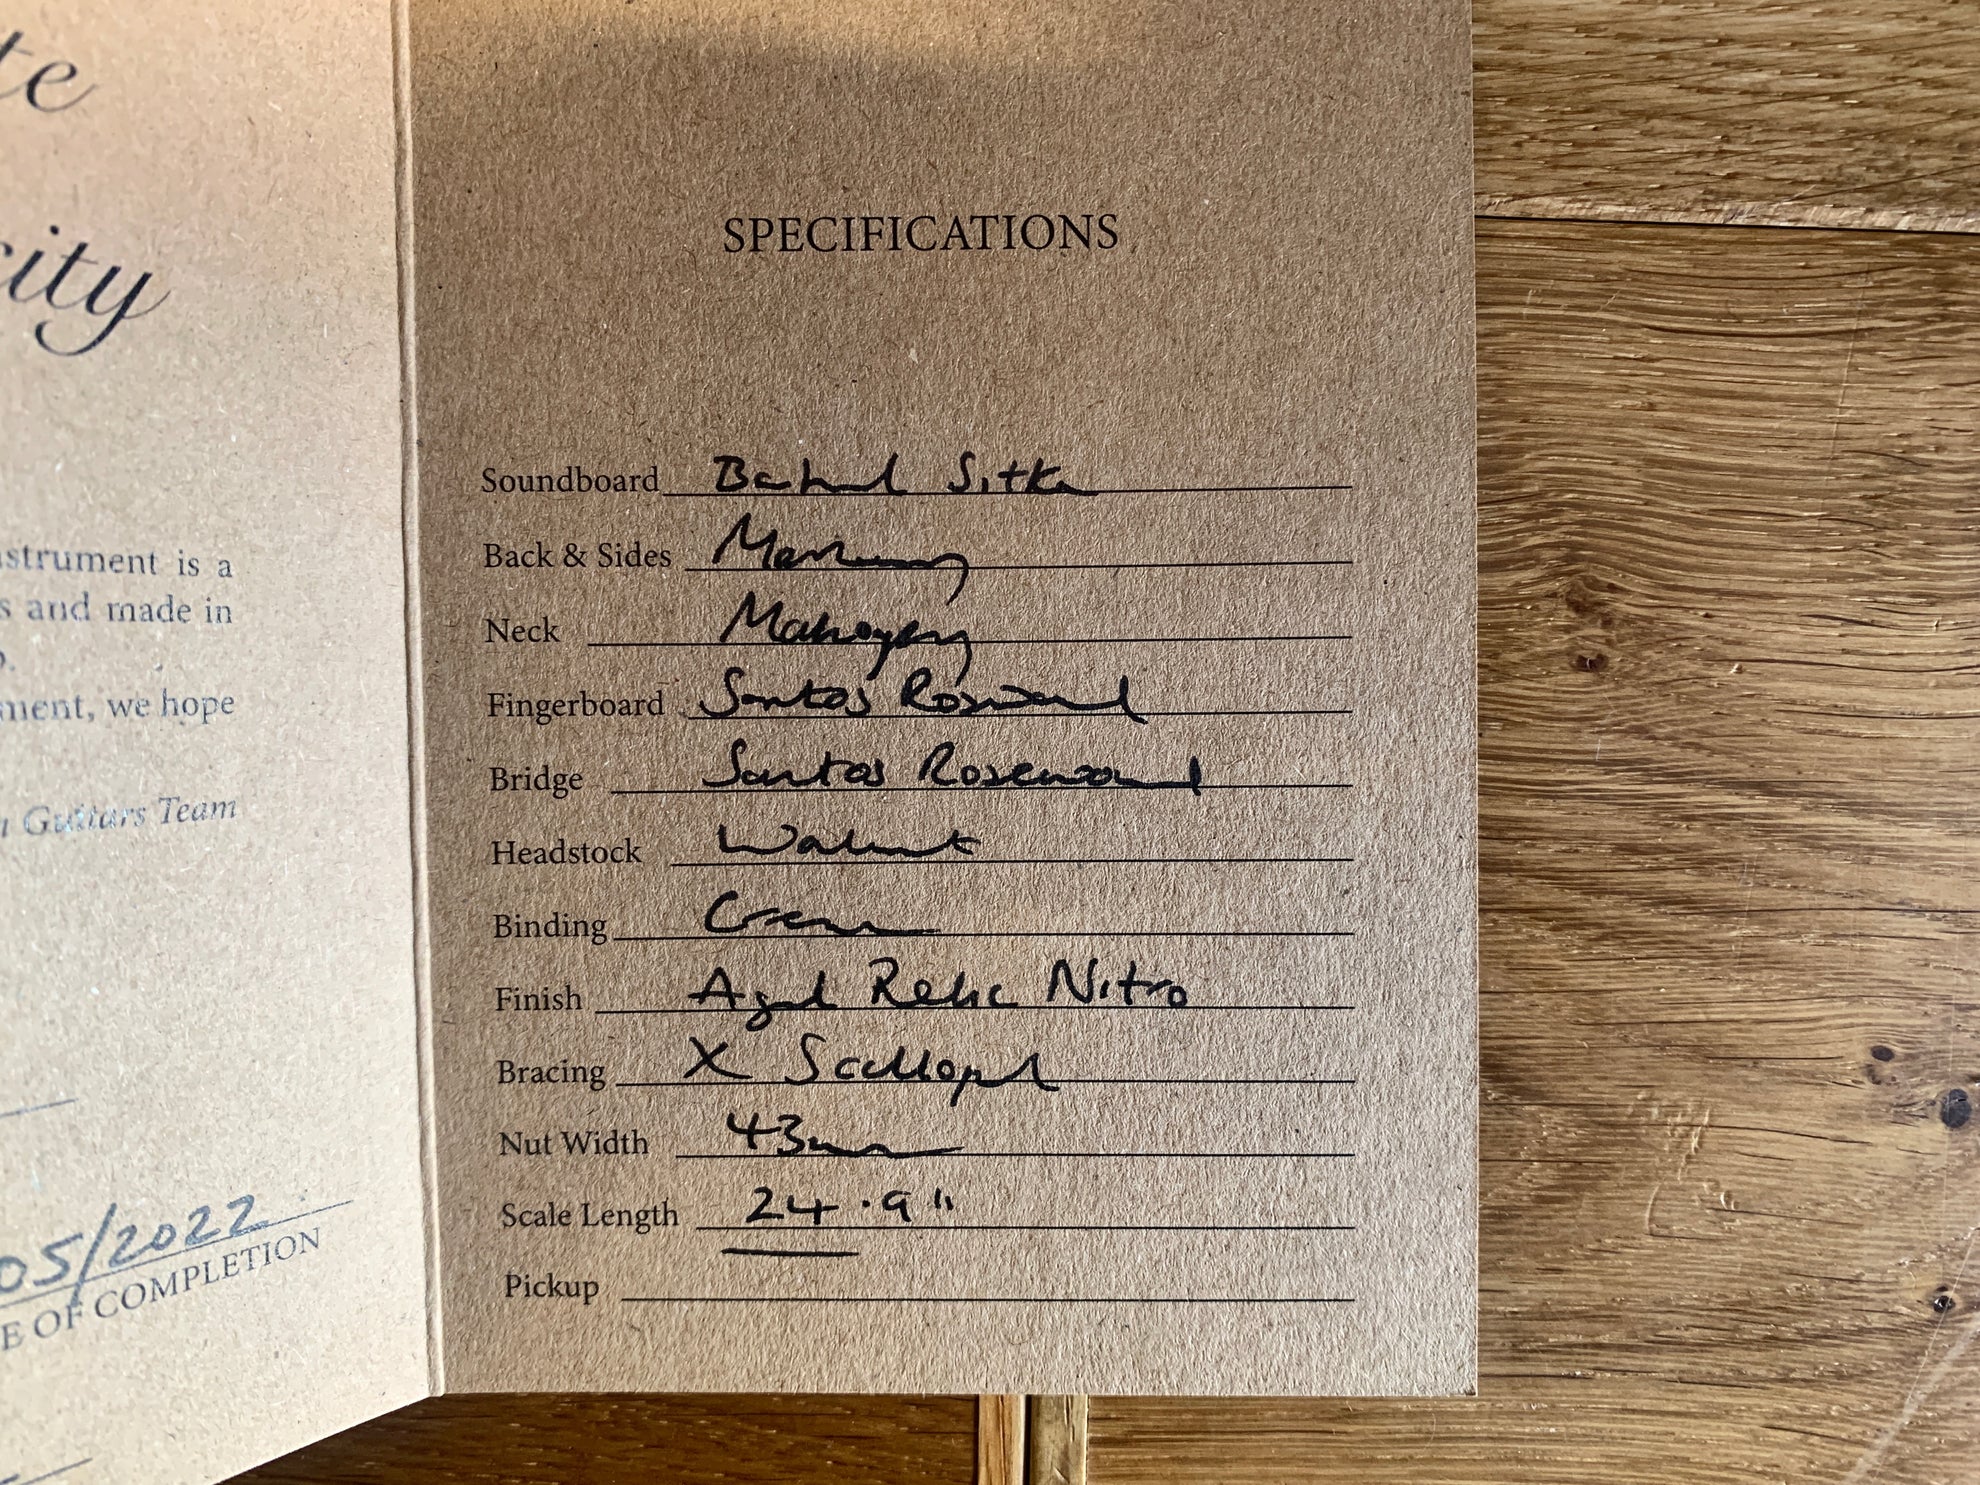 te
city
strument is a
s and made in
ment, we hope
Guitars Team
05/2022
E OF COMPLETION
SPECIFICATIONS
Soundboard Baked Sitka
Back & Sides Mahogany
Neck Mahogany
Fingerboard Santos Rosewood
Bridge Santos Rosewood
Headstock Walnut
Binding Cream
Finish Aged Relic Nitro
Bracing X Scalloped
Nut Width 43mm
Scale Length 24.9"
Pickup